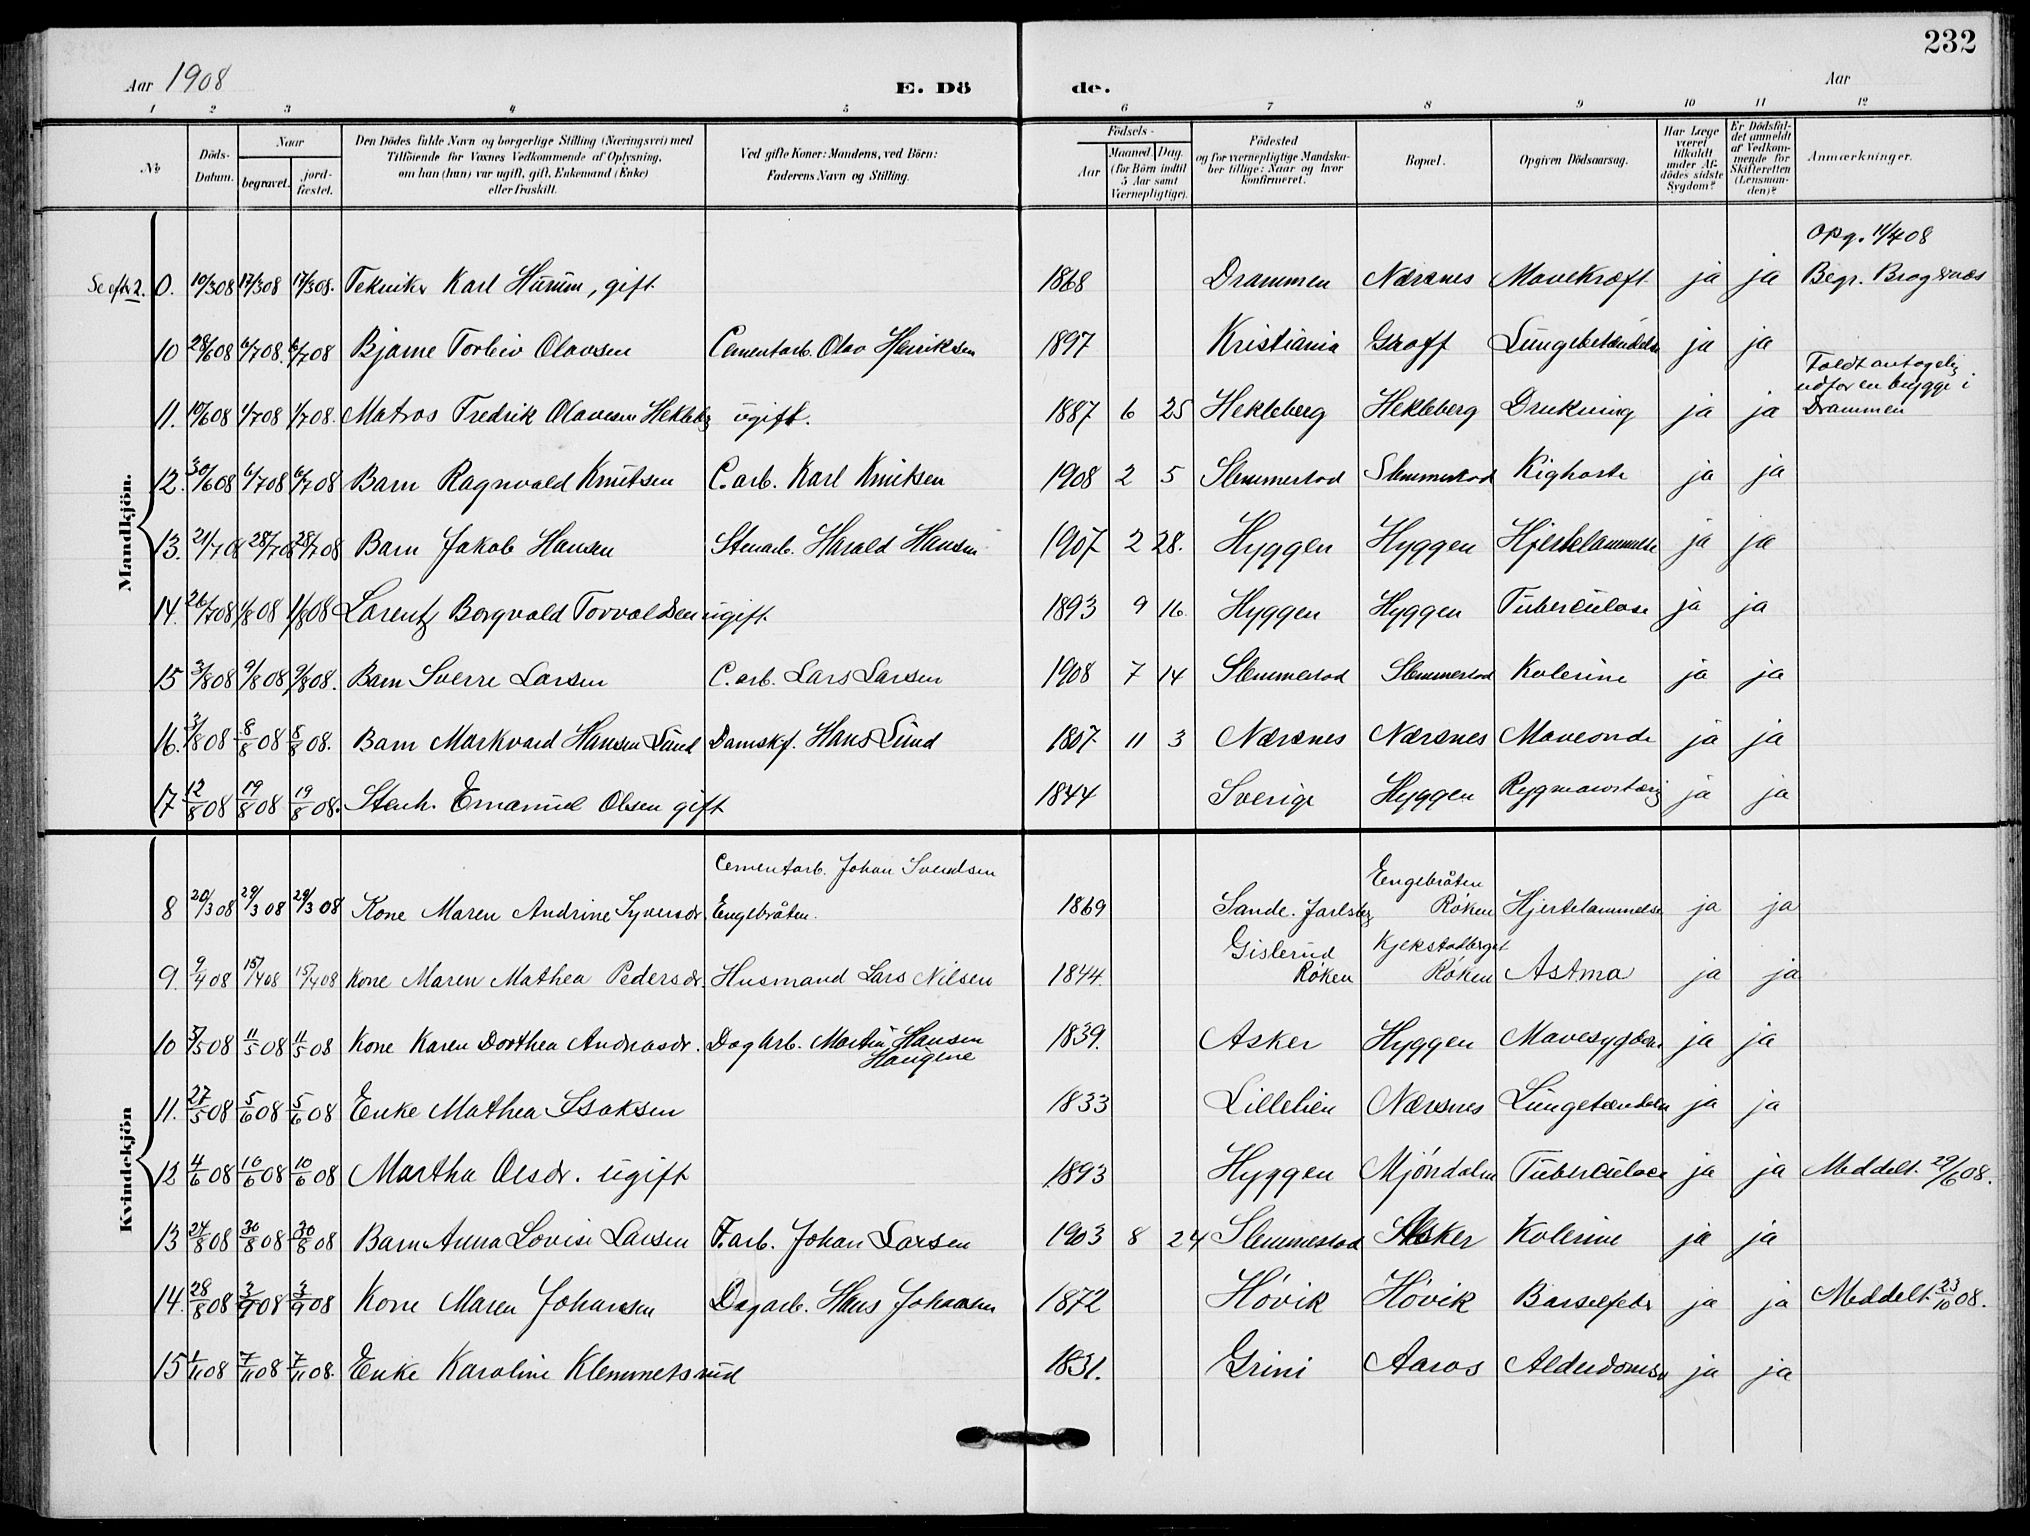 232
Aar 1908 E. Dö de. Aar
1 2 3 4 5 6 7 8 9 10 11 12
No
Döds-Datum.
Naar
begravet.
jord-fæstet.
Den Dödes fulde Navn og borgerlige Stilling (Næringsvei) med
Tilföiende for Voxnes Vedkommende af Oplysning,
om han (hun) var ugift, gift, Enkemand (Enke)
eller fraskilt.
Ved gifte Koner: Mandens, ved Börn:
Faderens Navn og Stilling.
Födsels-
Aar
Maaned. Dag.
(for Börn indtil
5 Aar samt
Værnepligtige).
Födested
og for værnepligtige Mandska-
ber tillige: Naar og hvor
konfirmeret.
Bopæl.
Opgiven Dödsaarsag.
Har Læge
været
tilkaldt
under Af-
dödes sidste
Sygdom?
Er Dödsfal-
det anmeldt
af Vedkom-
mende for
Skifteretten
(Lensman-
den)?
Anmærkninger.
Mandkjön.
Opg. 11/4 08
Se efter 2. 0. 10/3 08 17/3 08 17/3 08. Tekniker Karl Hurum, gift 1868 Drammen Nærsnes Mavekræft ja ja Begr. Bragernæs
10 28/6 08 6/7 08. 6/7 08 Bjarne Torleiv Olavsen Cementarb. Olav Henriksen 1897 Kristiania Graff Lungebetændelse ja ja
Faldt antagelig
udfor en brygge i
11. 10/6 08 1/7 08 1/7 08. Matros Fredrik Olavesen Hekleberg ugift. 1887 6 25 Hekleberg Hekleberg Drukning ja ja Drammen
12. 30/6 08 6/7 08 6/7 08 Barn Ragnvald Knutsen C. arb. Karl Knutsen 1908 2 5 Slemmestad Slemmestad Kighoste ja ja
13. 21/7 0 28/7 0 28/7 08 Barn Jakob Hansen Stenarb. Harald Hansen 1907 2 28. Hyggen Hyggen Hjertelammelse ja ja
14. 26/7 08 1/8 08 1/8 08 Lorentz Borgvald Torvaldsen ugift 1893 9 16 Hyggen Hyggen Tuberculose ja ja
15 3/8 08 9/8 08 9/8 08. Barn Sverre Larsen C. arb. Lars Larsen 1908 7 14 Slemmestad Slemmestad Kolerine ja ja
16. 3/8 08 8/8 08 8/8 08. Barn Markvard Hansen Lund Damskf. Hans Lund 1807 11 3 Nærsnes Nærsnes Maveonde ja ja
17 12/8 08 19/8 08 19/8 08. Stenh. Emanuel Olsen gift 1844 Sverige Hyggen Rygmarvstæring ja ja
Kvindekjön
Cementarb. Johan Svendsen Engebråten
8 20/3 08 29/3 08 29/3 08 Kone Maren Andrine Syversdr. Engebråten. 1869 Sande. Jarlsberg Røken Hjertelammelse ja ja
Gislerud Kjekstadberget
9. 9/4 08 15/4 08 15/4 08 Kone Maren Mathea Pedersdr. Husmand Lars Nilsen 1844. Røken Røken Astma ja ja
10 5/5 08 11/5 08 11/5 08 Kone Karen Dorthea Andreasdr. Dagarb. Martin Hansen 1839. Asker Hyggen Mavesygdom ja ja
Haugene
11. 27/5 08 5/6 08 5/6 08 Enke Mathea Isaksen 1833 Lillelien Nærsnes Lungebetændelse ja ja
12 4/6 08 10/6 08 10/6 08 Martha Olsdr. ugift 1893 Hyggen Mjöndalen Tuberculose ja ja Meddelt. 29/6 08.
13 24/8 08 30/8 08 30/8 08 Barn Anna Lovise Larsen F. arb. Johan Larsen 1903 8 24 Slemmestad Asker Kolerine ja ja
14. 28/8 08 3/9 08 3/9 08 Kone Maren Johansen Dagarb. Hans Johansen 1872 Høvik Høvik Barselfeber ja ja Meddelt. 23/10 08.
15 1/11 08 7/11 08 7/11 08. Enke Karoline Klemmetsrud 1831. Grini Aaros Alderdomssv ja ja